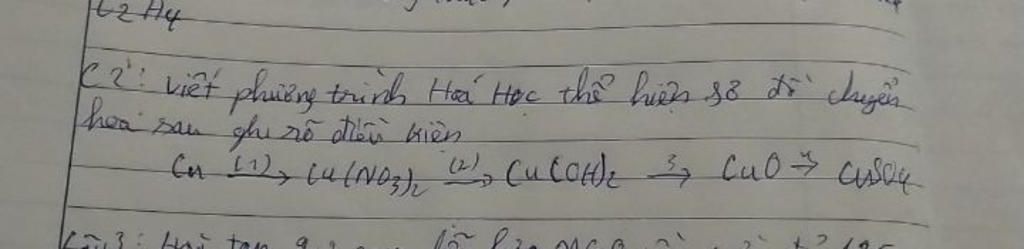 C2H4
C2: viết phương trình Hoá Học thể hiện sơ đồ chuyển
hoá sau ghi rõ điều kiện
Cu (1)→ Cu(NO3)2 (2)→ Cu(OH)2 3→ CuO 4→ CuSO4
Câu3: Hoà tan